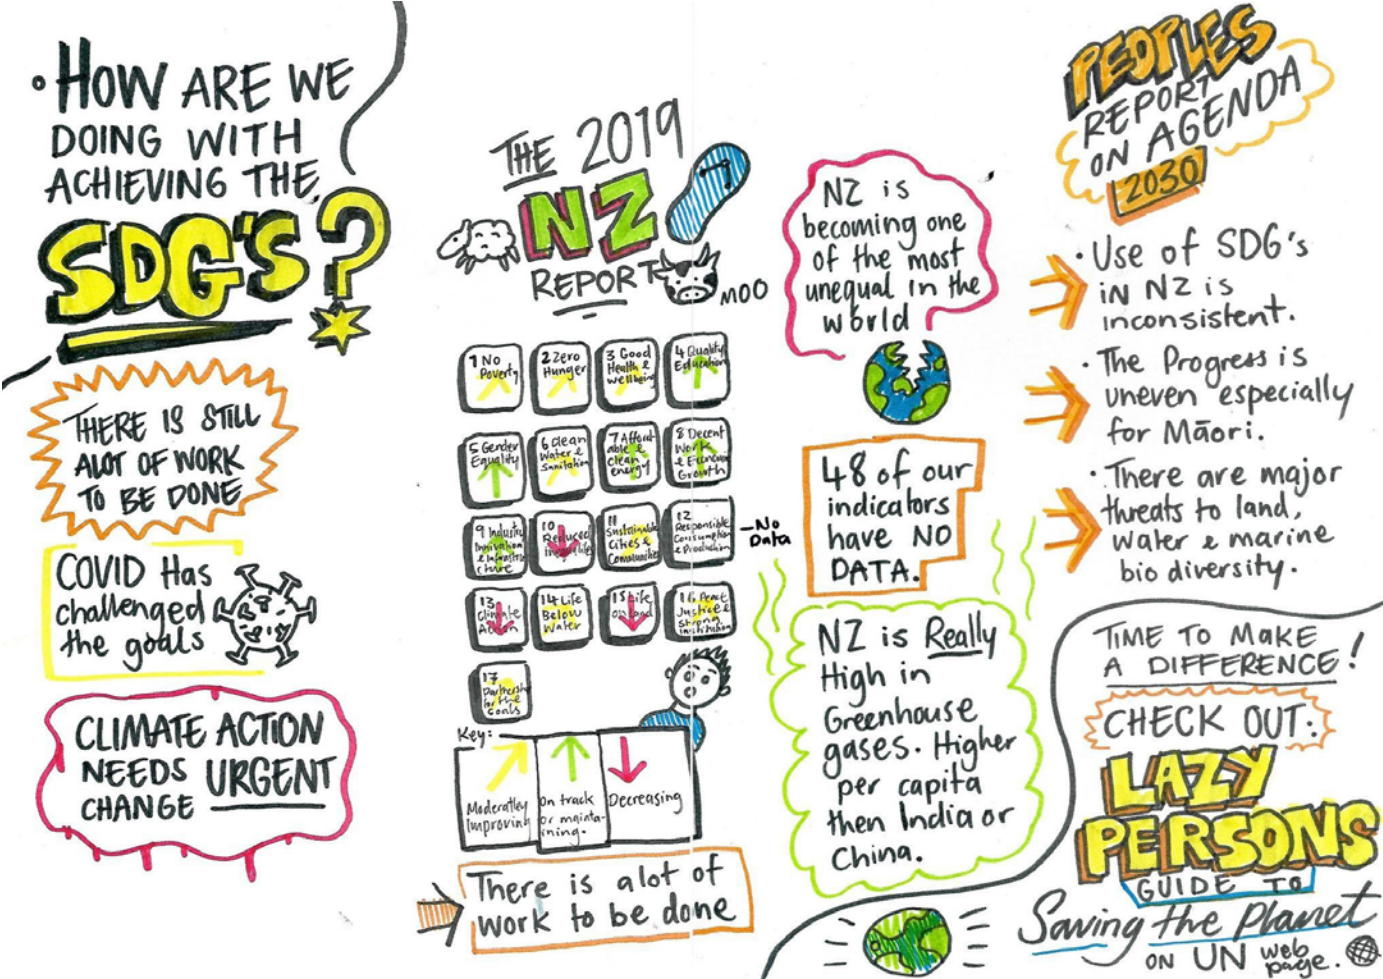 • HOW ARE WE
DOING WITH
ACHIEVING THE
SDG'S?
THERE IS STILL
ALOT OF WORK
TO BE DONE
COVID Has
challenged
the goals
CLIMATE ACTION
NEEDS URGENT
CHANGE
THE 2019
NZ
REPORT
MOO
1 No
Poverty
2 Zero
Hunger
3 Good
Health &
wellbeing
4 Quality
Education
5 Gender
Equality
6 Clean
Water &
Sanitation
7 Afford-
able &
clean
energy
8 Decent
Work
& Economic
Growth
9 Industry
Innovation
& Infrastru
cture
10
Reduced
Inequalities
11
Sustainable
Cities &
Communities
12
Responsible
Consumption
& Production
- No
Data
13
Climate
Action
14 Life
Below
Water
15 Life
on Land
16 Peace
Justice &
Strong
Institution
17
Partnership
for the
Goals
Key:
Moderatley
Improving
On track
or mainta-
ining.
Decreasing
There is alot of
work to be done
NZ is
becoming one
of the most
unequal in the
world
48 of our
indicators
have NO
DATA.
NZ is Really
High in
Greenhouse
gases. Higher
per capita
then India or
China.
PEOPLES
REPORT
ON AGENDA
2030
• Use of SDG's
iN NZ is
inconsistent.
• The Progress is
uneven especially
for Māori.
• There are major
threats to land,
water & marine
bio diversity.
TIME TO MAKE
A DIFFERENCE!
CHECK OUT:
LAZY
PERSONS
GUIDE TO
Saving the Planet
ON UN web
page.